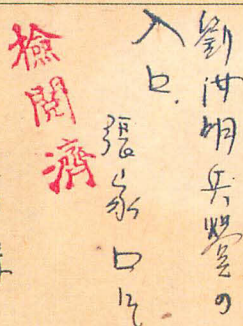 劉汝明兵營の
入口.
張家口にて
檢閲濟